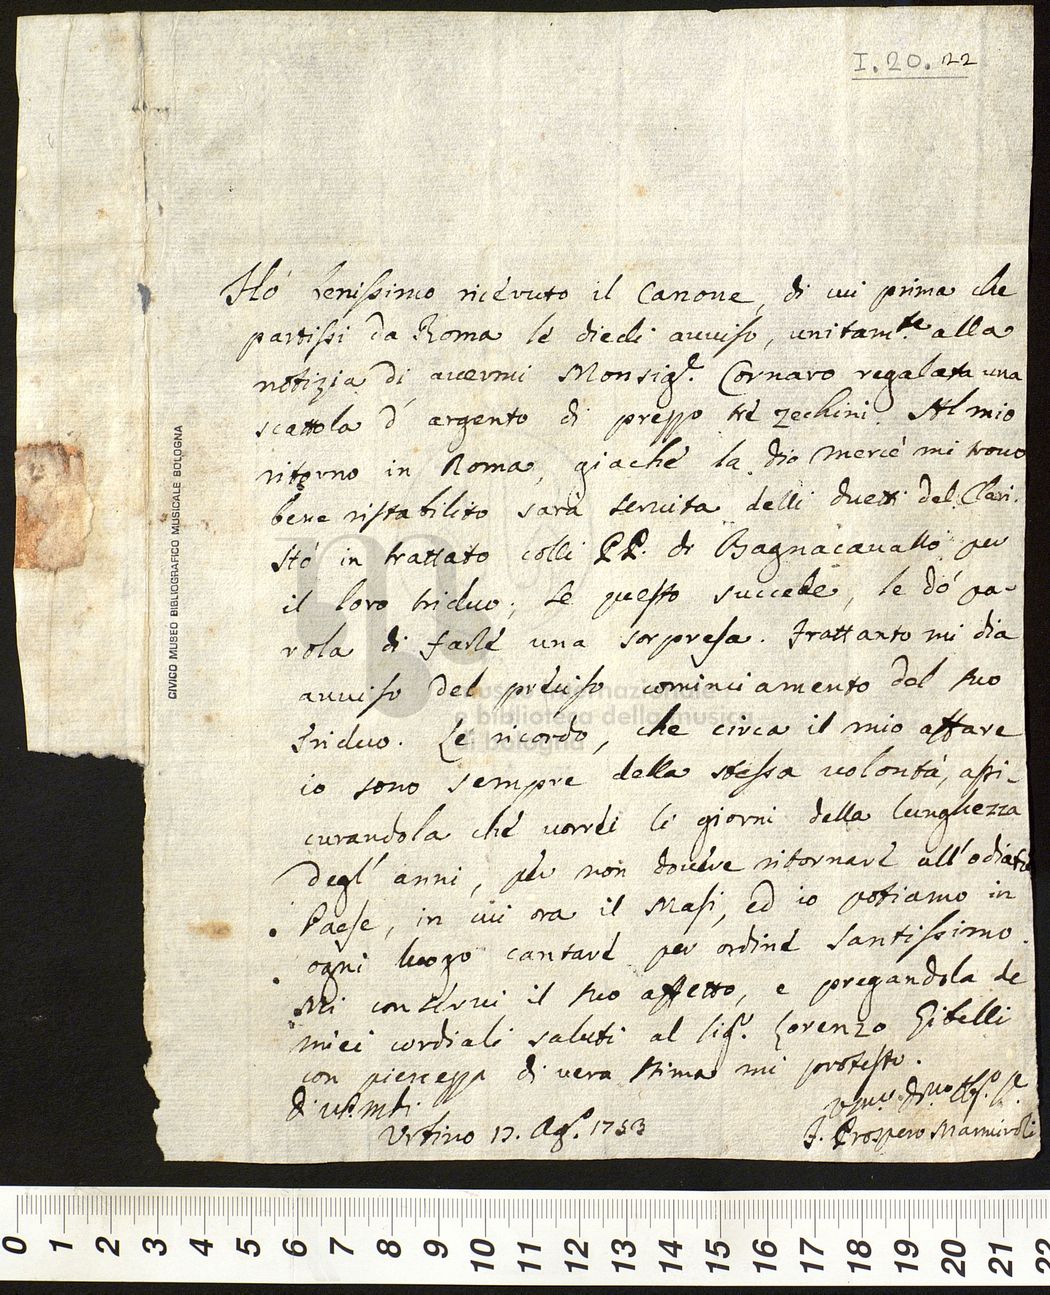 I. 20. 22
Hò benissimo ricevuto il Canone, di cui prima che
partissi da Roma le diedi avviso, unitam.te alla
notizia di avermi Monsig.r Cornaro regalata una
scattola d'argento di prezzo tré zecchini. Al mio
ritorno in Roma, giaché la dio mercé mi trovo
bene ristabilito sarà servita delli duetti del Clari.
Stó in trattato colli PP. di Bagnacavallo per
il loro triduo; se questo succede, le dó pa-
rola di farle una sorpresa. Frattanto mi dia
avviso del preciso cominciamento del suo
Triduo. Le ricordo, che circa il mio affare
io sono sempre della stessa volontà, assi-
curandola ché vorrei li giorni della lunghezza
degl'anni, per non dovere ritornare all'odiato
Paese, in cui ora il Masi, ed io potiamo in
ogni luogo cantare per ordine Santissimo.
Mi conservi il suo affetto, e pregandola de
miei cordiali saluti al Sig.r Lorenzo Gibelli
con pienezza di vera stima mi protesto.
Urbino 17. Ag.o 1753
F. Prospero Marmiroli
CIVICO MUSEO BIBLIOGRAFICO MUSICALE BOLOGNA
museo internazionale
e biblioteca della musica
di bologna
0 1 2 3 4 5 6 7 8 9 10 11 12 13 14 15 16 17 18 19 20 21 22